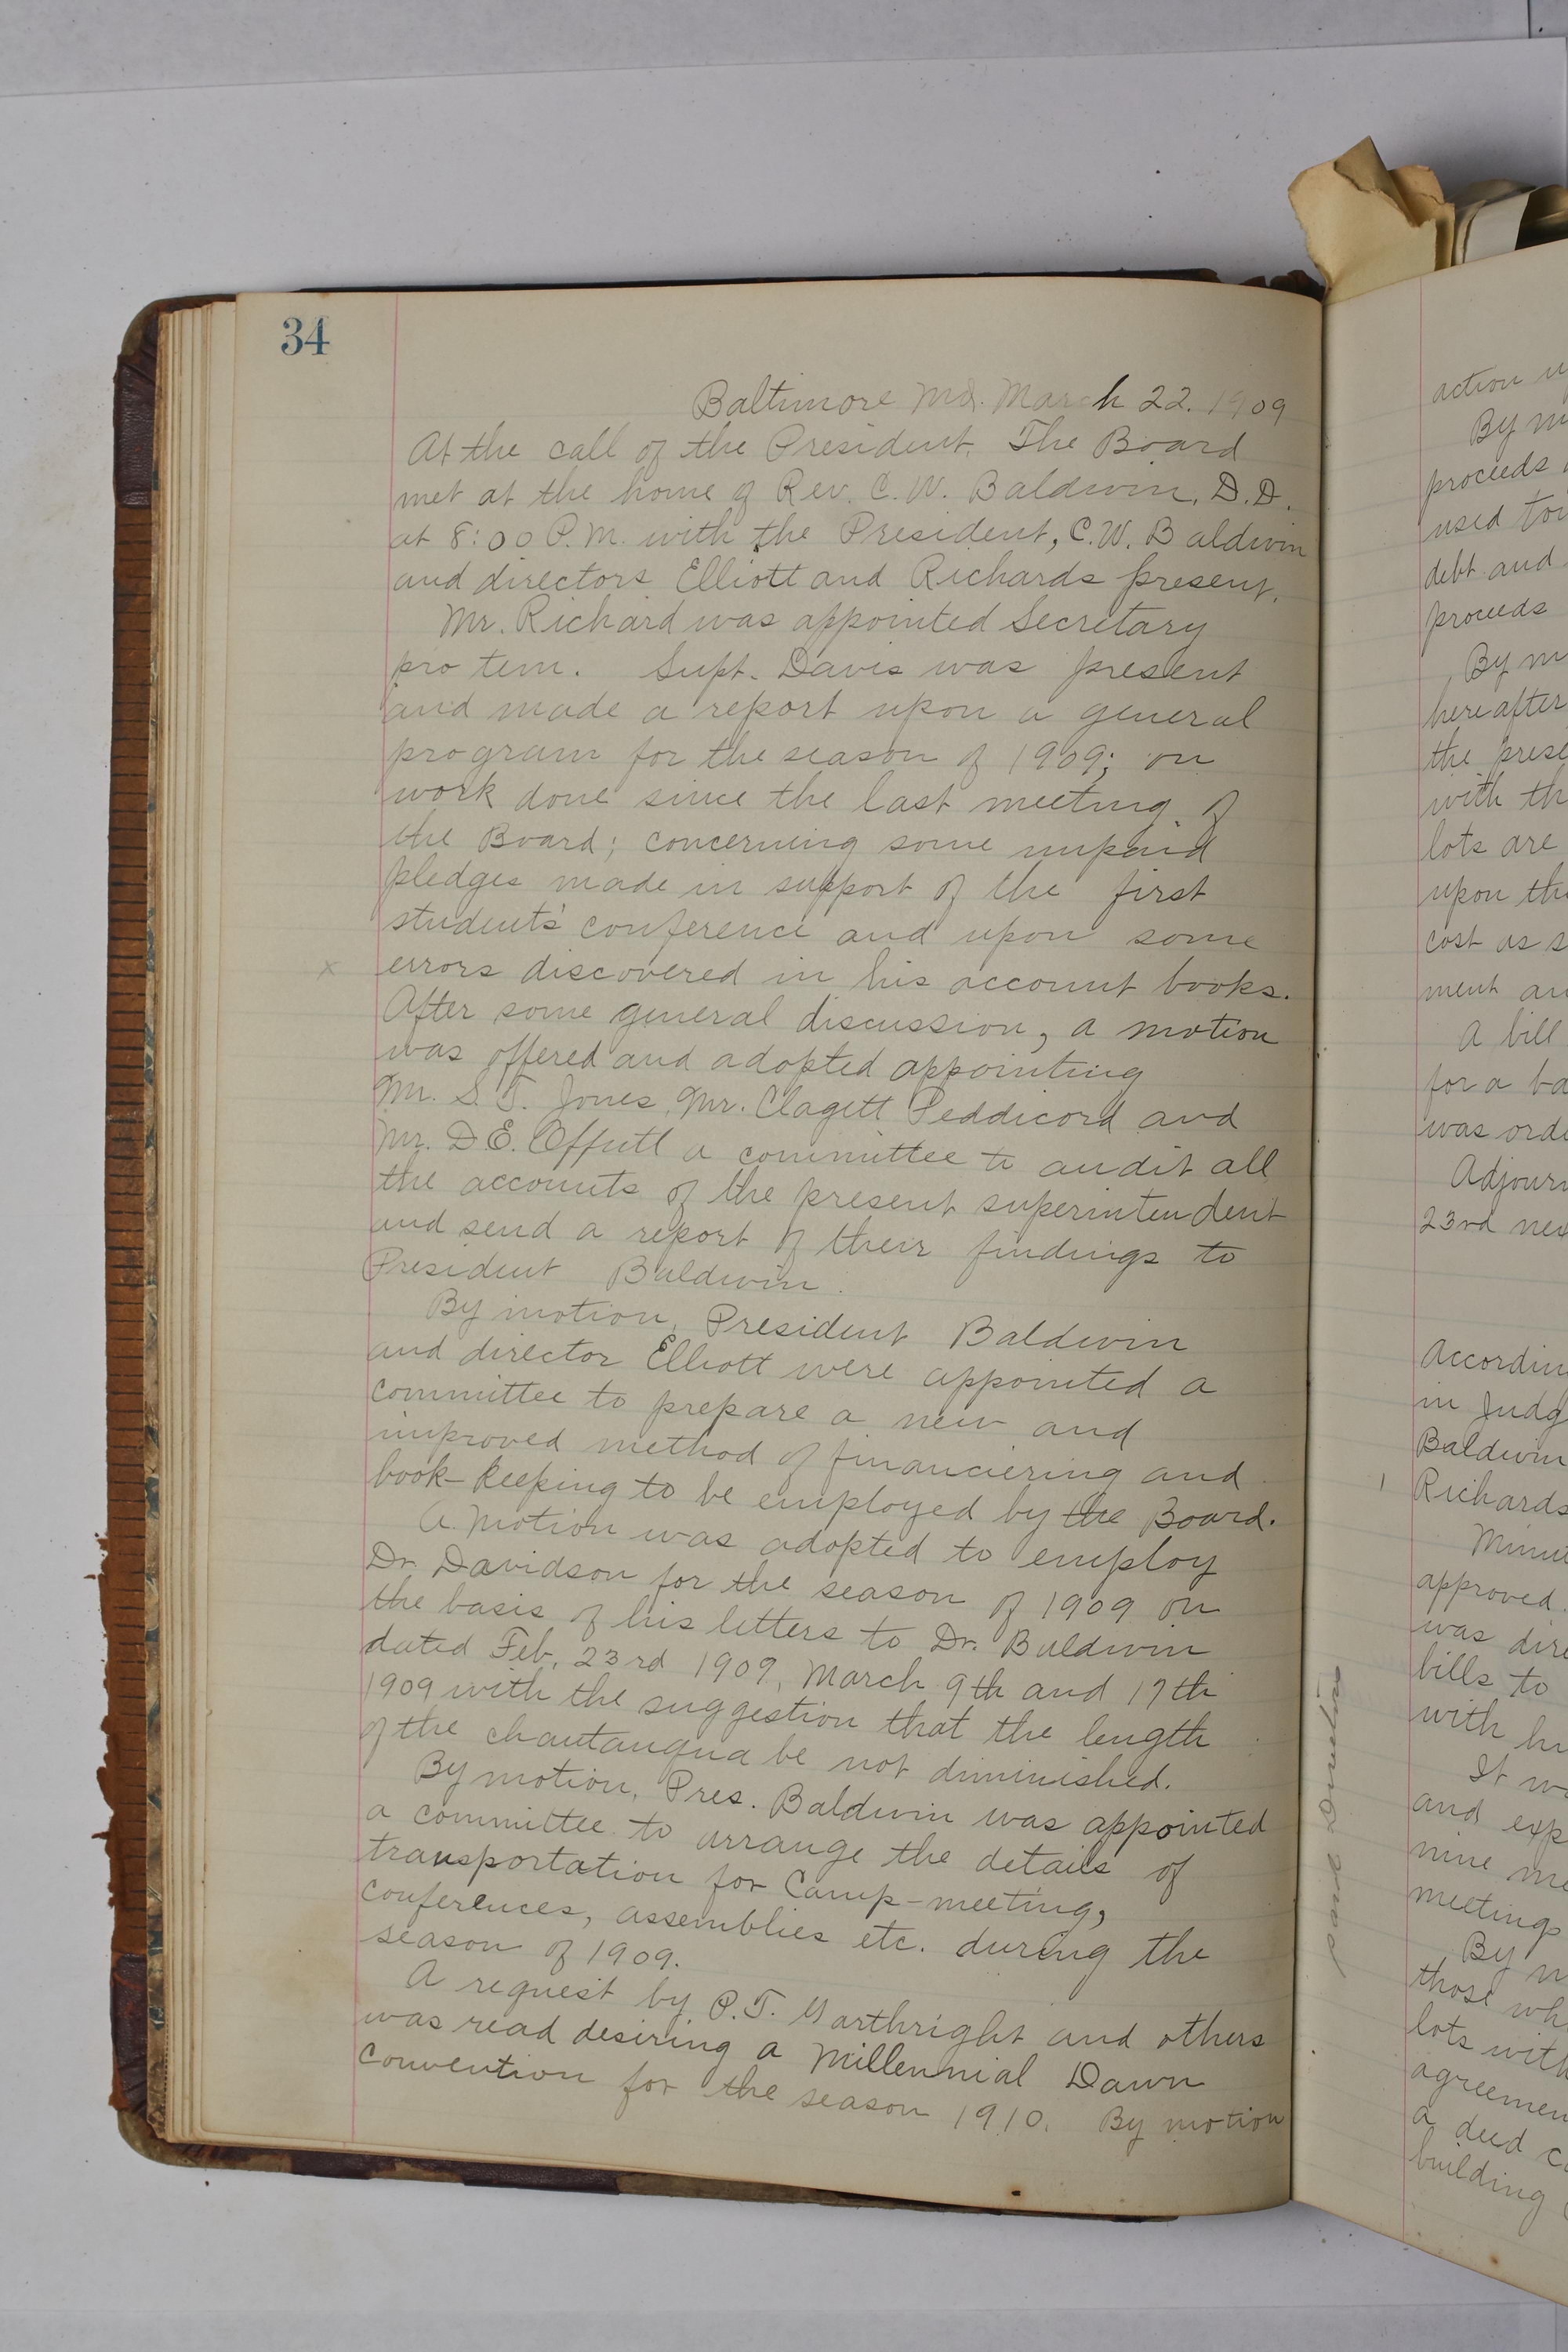 34
Baltimore Md. March 22. 1909
At the call of the President. The Board
met at the home of Rev. C. W. Baldwin, D.D.
at 8:00 P.M. with the President, C.W. Baldwin
and directors Elliott and Richards present.
Mr. Richard was appointed Secretary
pro tem. Supt. Davis was present
and made a report upon a general
program for the season of 1909; on
work done since the last meeting of
the Board; concerning some unpaid
pledges made in support of the first
students' conference and upon some
x errors discovered in his account books.
After some general discussion, a motion
was offered and adopted appointing
Mr. S. T. Jones, Mr. Clagett Peddicord and
Mr. D E. Offutt a committee to audit all
the accounts of the present superintendent
and send a report of their findings to
President Baldwin.
By motion, President Baldwin
and director Elliott were appointed a
committee to prepare a new and
improved method of financiering and
book-keeping to be employed by the Board.
A motion was adopted to employ
Dr. Davidson for the season of 1909 on
the basis of his letters to Dr. Baldwin
dated Feb. 23rd 1909, March 9th and 17th
1909 with the suggestion that the length
of the chautauqua be not diminished.
By motion, Pres. Baldwin was appointed
a committee to arrange the details of
transportation for Camp-meeting,
conferences, assemblies etc. during the
season of 1909.
A request by P.T. and others
was read desiring a Millennial Dawn
convention for the season 1910. By motion
action
By m
proceeds
used
debt and
proceeds
By m
hereafter
the prese
with th
lots are
upon the
cost as s
ment an
A bill
for a ba
was orde
Adjourn
23rd nex
Accordin
in Judg
Baldwin
Richards
Minut
approved.
was dire
bills to
with hi
It wa
and exp
nine me
meetings
By m
those wh
lots with
agreemen
a deed co
building